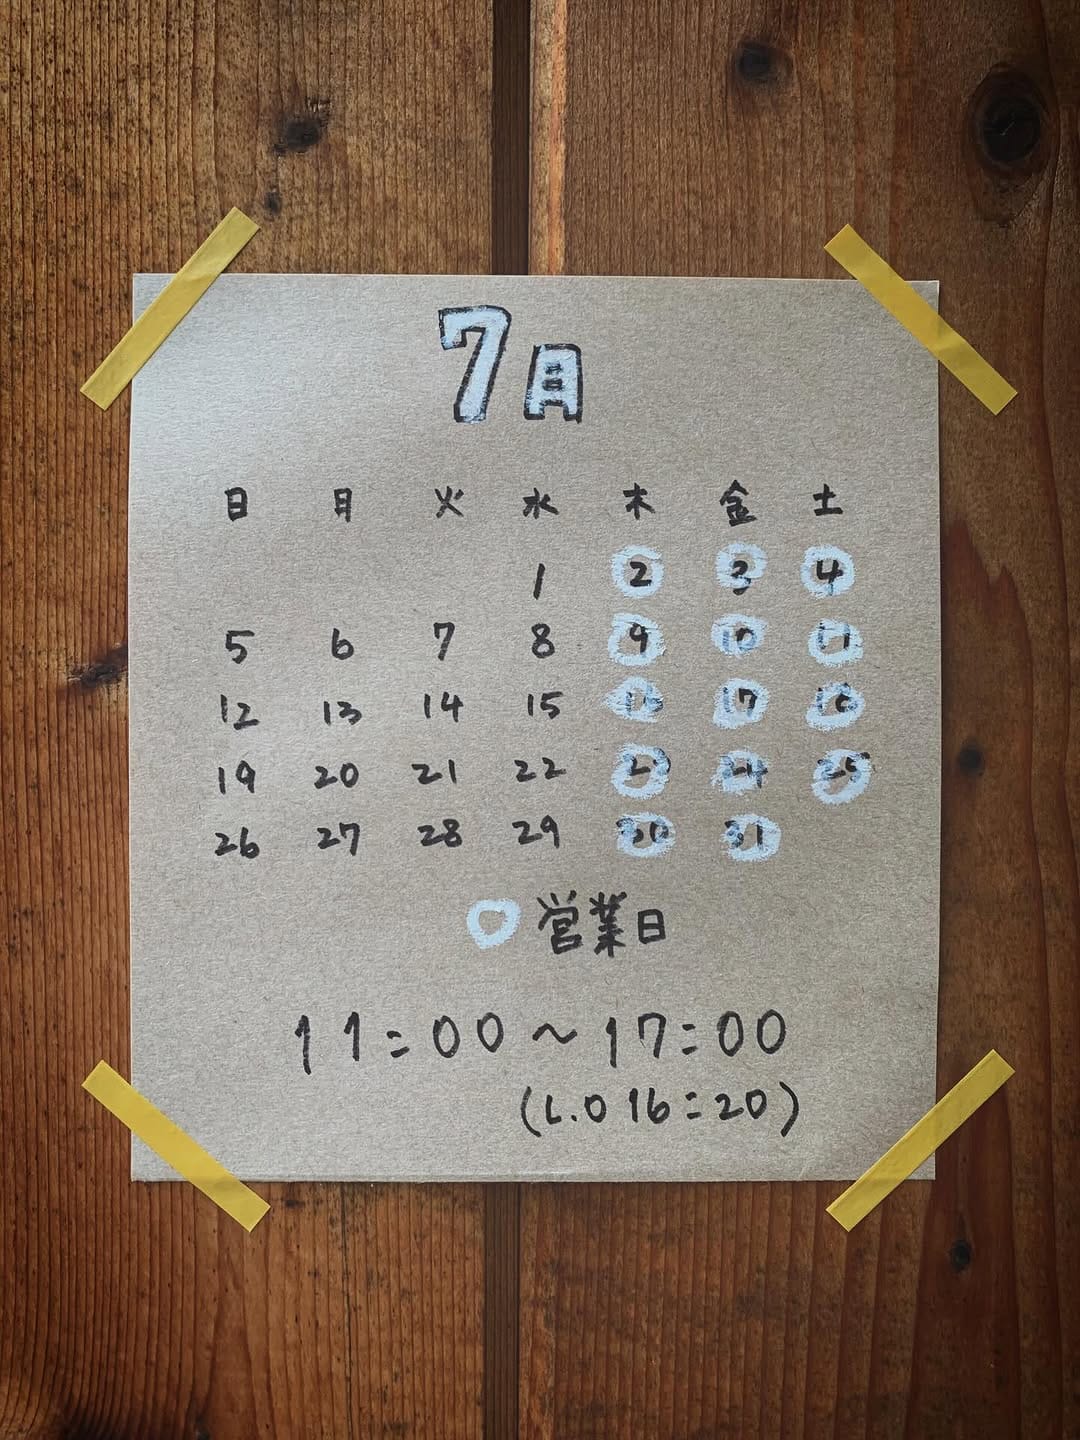 7月
日 月 火 水 木 金 土
1 2 3 4
5 6 7 8 9 10 11
12 13 14 15 16 17 18
19 20 21 22 23 24 25
26 27 28 29 30 31
○ 営業日
11:00〜17:00
(L.O 16:20)